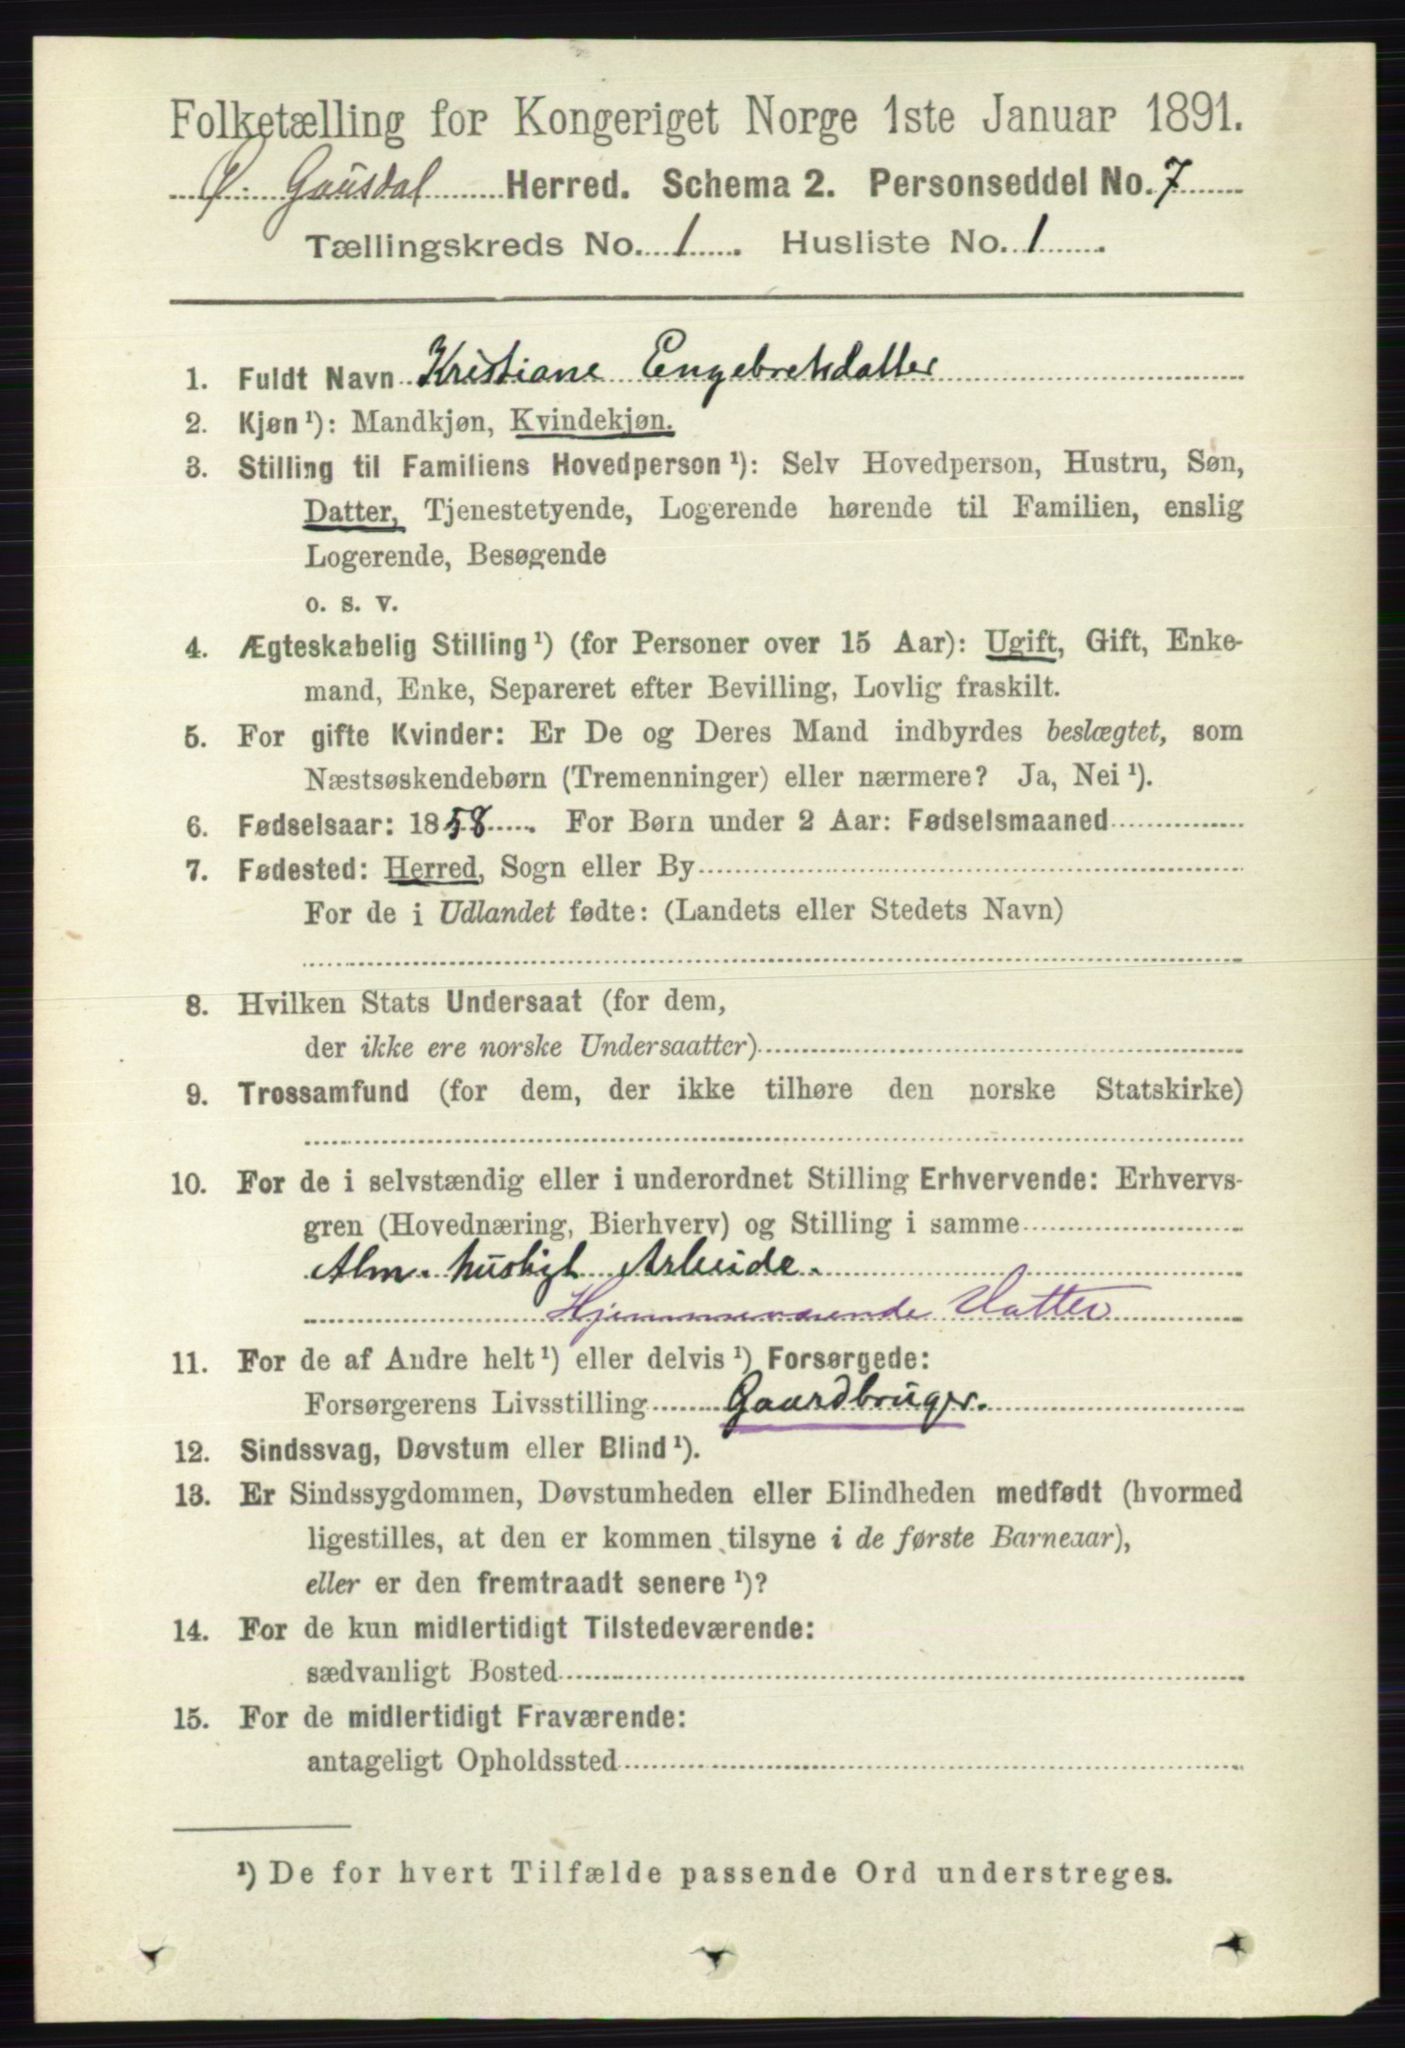 Folketælling for Kongeriget Norge 1ste Januar 1891.
Ø. Gausdal Herred. Schema 2. Personseddel No. 7
Tællingskreds No. 1. Husliste No. 1.
1. Fuldt Navn Kristiane Engebretsdatter
2. Kjøn ¹): Mandkjøn, Kvindekjøn.
3. Stilling til Familiens Hovedperson ¹): Selv Hovedperson, Hustru, Søn,
Datter, Tjenestetyende, Logerende hørende til Familien, enslig
Logerende, Besøgende
o. s. v.
4. Ægteskabelig Stilling ¹) (for Personer over 15 Aar): Ugift, Gift, Enke-
mand, Enke, Separeret efter Bevilling, Lovlig fraskilt.
5. For gifte Kvinder: Er De og Deres Mand indbyrdes beslægtet, som
Næstsøskendebørn (Tremenninger) eller nærmere? Ja, Nei ¹).
6. Fødselsaar: 1858. For Børn under 2 Aar: Fødselsmaaned
7. Fødested: Herred, Sogn eller By
For de i Udlandet fødte: (Landets eller Stedets Navn)
8. Hvilken Stats Undersaat (for dem,
der ikke ere norske Undersaatter)
9. Trossamfund (for dem, der ikke tilhøre den norske Statskirke)
10. For de i selvstændig eller i underordnet Stilling Erhvervende: Erhvervs-
gren (Hovednæring, Bierhverv) og Stilling i samme
Alm. husligt Arbeide.
Hjemmeværende Datter
11. For de af Andre helt ¹) eller delvis ¹) Forsørgede:
Forsørgerens Livsstilling Gaardbruger.
12. Sindssvag, Døvstum eller Blind ¹).
13. Er Sindssygdommen, Døvstumheden eller Blindheden medfødt (hvormed
ligestilles, at den er kommen tilsyne i de første Barneaar),
eller er den fremtraadt senere ¹)?
14. For de kun midlertidigt Tilstedeværende:
sædvanligt Bosted
15. For de midlertidigt Fraværende:
antageligt Opholdssted
¹) De for hvert Tilfælde passende Ord understreges.